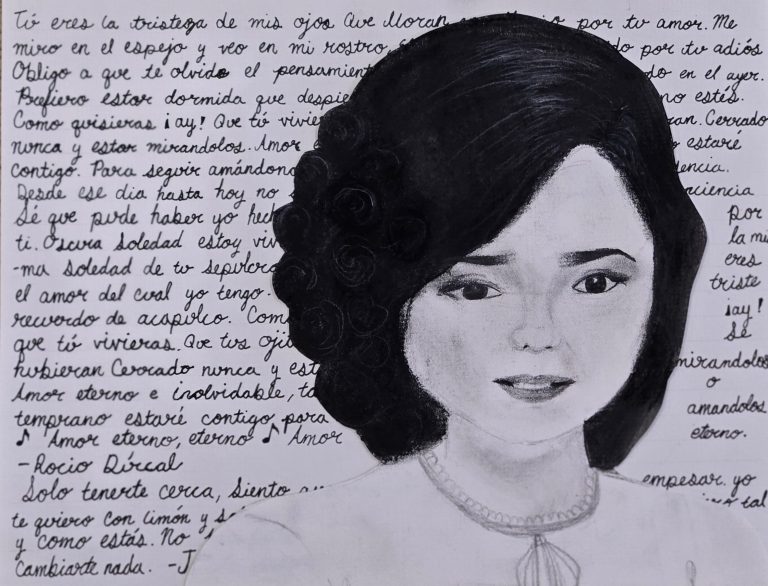 Tú eres la tristeza de mis ojos Que lloran por tu amor. Me
miro en el espejo y veo en mi rostro, do por tu adiós
Obligo a que te olvide el pensamient do en el ayer.
Prefiero estar dormida que despie no estés.
Como quisieras ¡ay! Que tú vivier ran. Cerrado
nunca y estar mirandolos. Amor e estaré
contigo. Para seguir amándono dencia.
Desde ese dia hasta hoy no naciencia
Sé que pude haber yo hech por
ti. Oscura Soledad estoy viv la mi
-ma soledad de tu sepulcro eres
el amor del cual yo tengo. triste
recuerdo de acapulco. Com ¡ay!
que tú vivieras. Que tus ojit Sé
hubieran Cerrado nunca y est mirandolos
Amor eterno e inolvidable, ta o
temprano estaré contigo para amandolos
♪ 'Amor eterno, eterno ♪ 'Amor eterno.
-Rocio Dírcal
Solo tenerte cerca, siento empesar. yo
te quiero con limón y sa tal
y como estás. No
Cambiarte nada. -J